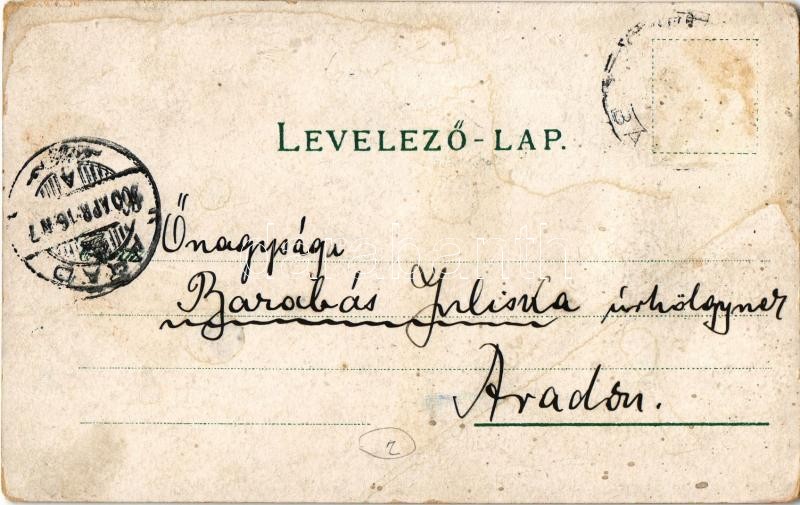 LEVELEZŐ-LAP.
ARAD
900 APR. 16. N 7
A
BA
Őnagysága
Barabás Juliska úrhölgynek
Aradon.
2